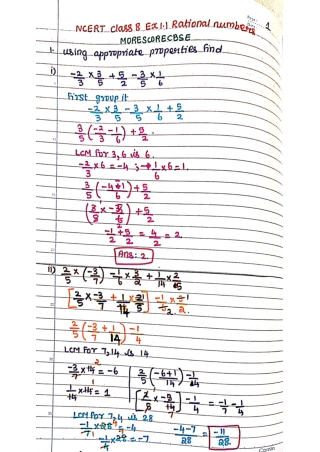 1
NCERT class 8 Ex 1.1 Rational numbers
MORESCORECBSE
1. using appropriate properties find
i) -2/3 × 3/5 + 5/2 - 3/5 × 1/6
First group it
-2/3 × 3/5 - 3/5 × 1/6 + 5/2
3/5 (-2/3 - 1/6) + 5/2
LCM for 3, 6 is 6.
-2/3 × 6 = -4 ; 1/6 × 6 = 1.
3/5 (-4-1/6) + 5/2
+ 5/2
-1/2 + 5/2 = 4/2 = 2.
Ans: 2.
ii) 2/5 × (-3/7) - 1/6 × 3/2 + 1/14 × 2/5
[2/5 × -3/7 + 1/14 × 2/5] -
2/5 (-3/7 + 1/14) - 1/4
LCM For 7, 14 is 14
-3/7 × 14 = -6
2/5 (-6+1/14) -
1/14 × 14 = 1
- 1/4 = -1/7 - 1/4
LCM for 7, 4 is 28
-1/7 × 28 = -4
-4-7/28 = -11/28
-1/4 × 28 = -7